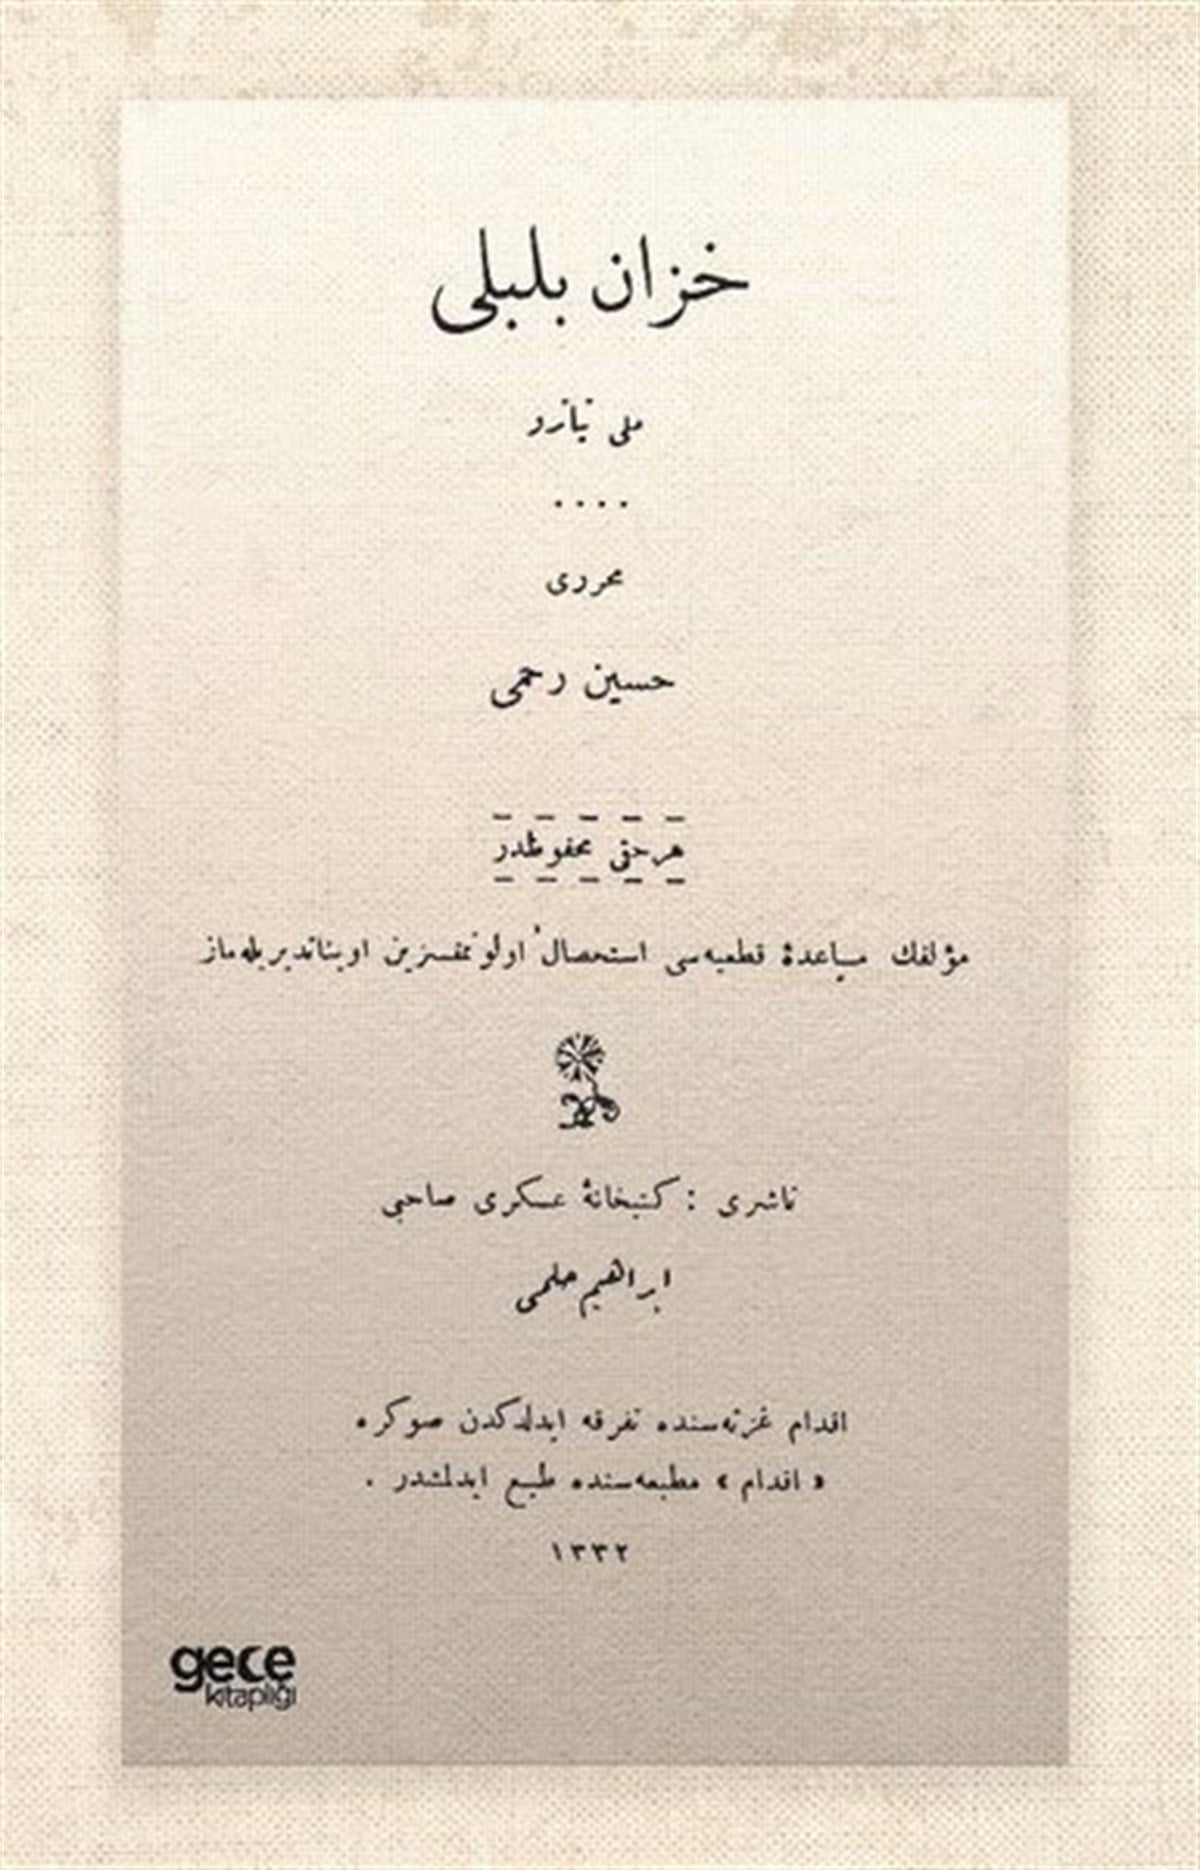 خزان بلبلی
ملی تیاترو
....
محرری
حسین رحمی
هر حقی محفوظدر
مؤلفك مساعدهٔ قطعیه‌سی استحصال اولونمقسزین اویناتدیریله‌ماز
ناشری : كتبخانهٔ عسكری صاحبی
ابراهیم حلمی
اقدام غزته‌سنده تفرقه ایدلدكدن صوكره
« اقدام » مطبعه‌سنده طبع ایدلمشدر .
١٣٣٢
gece
kitaplığı